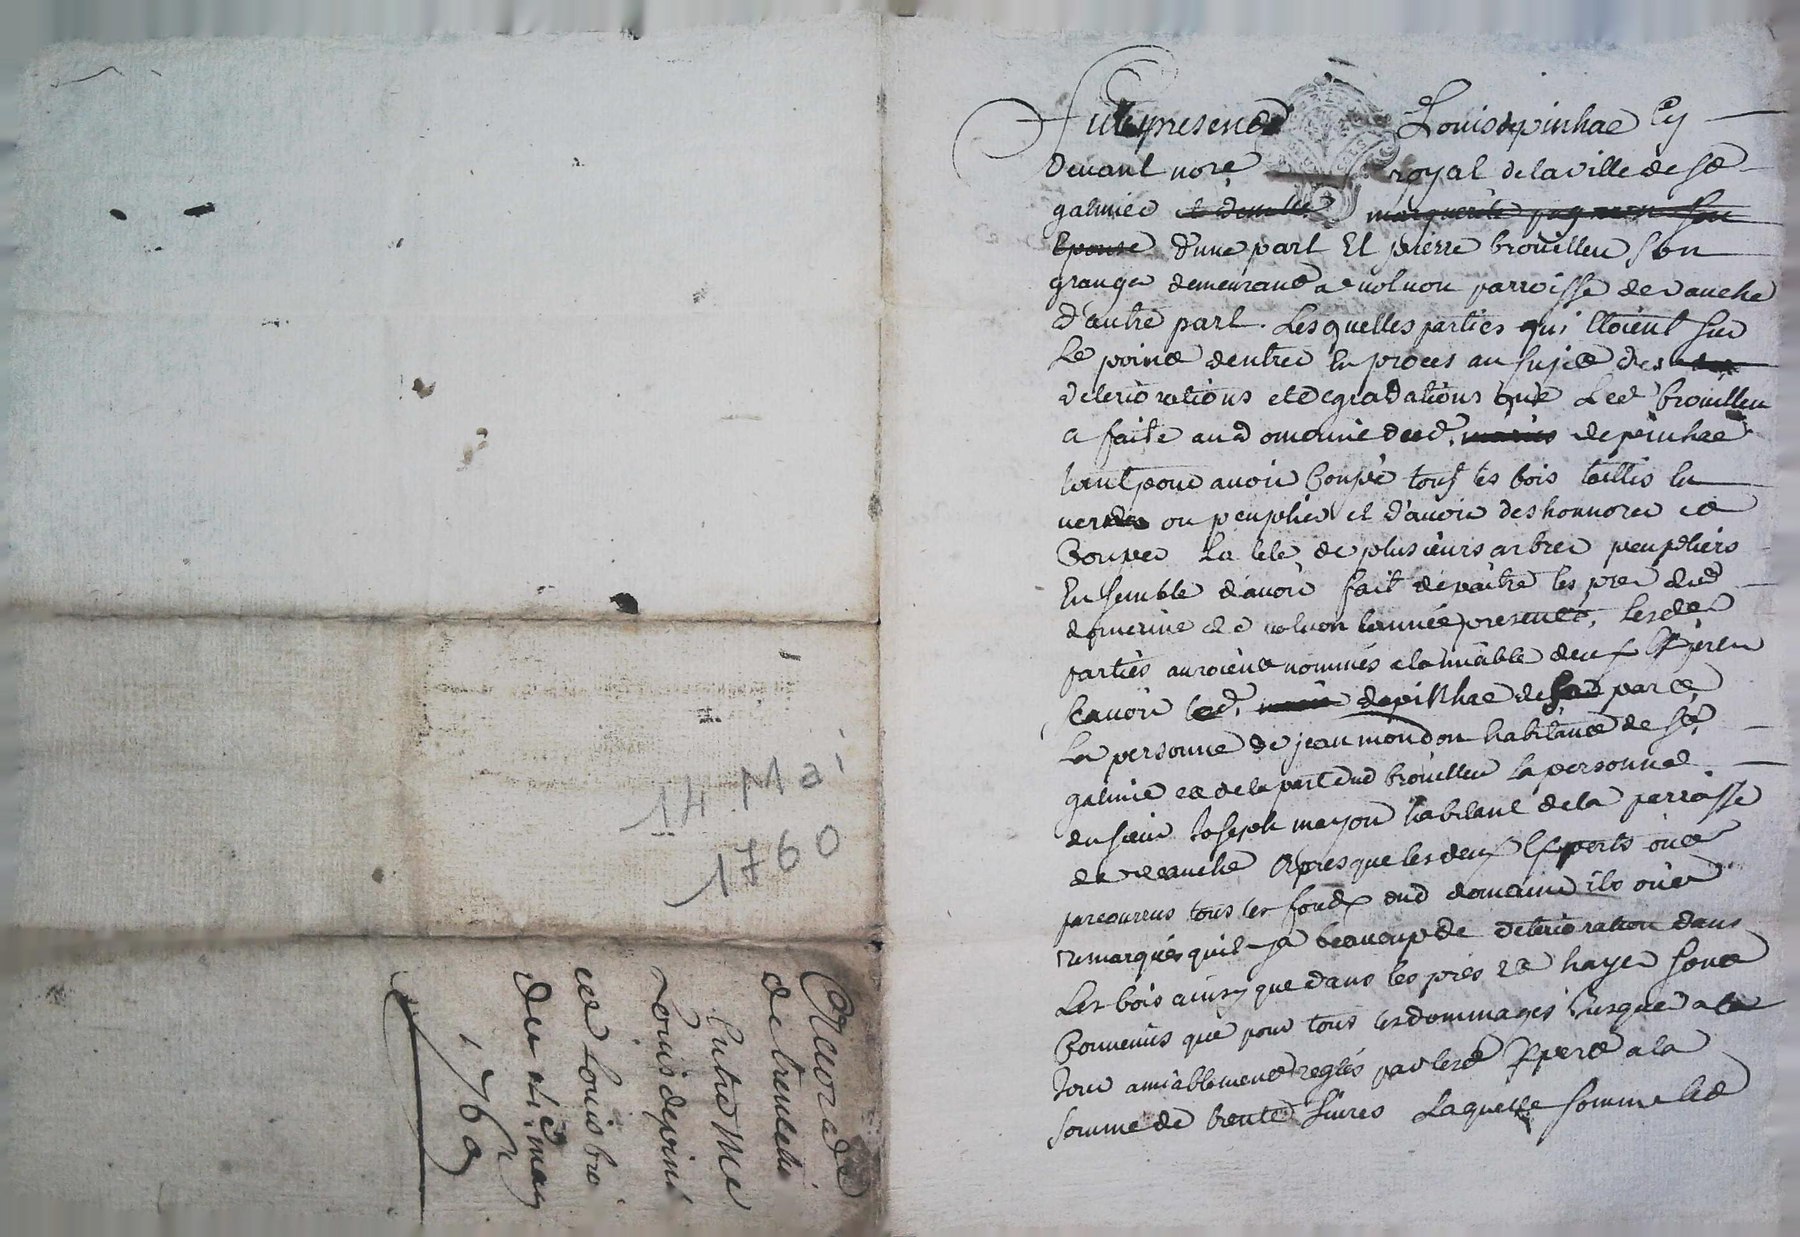 14 Mai
1760
Accord
de trente
Entre Me
Louis depin
et Louis bro
du
may
1760
Fut present Louis depinhac Cy
devant nore royal de la ville de St
galmier
Epouse d'une part Et pierre brouilleu son
granger demeurand a volvon parroisse de vauche
d'autre part. Lesquelles parties qui Etoient sur
Le point dentrer En proces au sujet des
deteriorations et degradations que Led brouilleu
a faite au domenne dud. depinhac
tant pour avoir Coupé tous les bois taillis En
ver ou peuplier et d'avoir deshonnorer et
Couper La tete de plusieurs arbres peupliers
Ensemble d'avoir fait depaitre les pres dud
domerine de volvon lannée presente, Lesdes
parties auroient nommés a lamiable deux Experts
scavoir led. depinhac de sa part
La personne de jean mondon habitant de St
galmie et de la part dud brouilleu la personne
du sieur Joseph mayon habitant de la parroisse
de veauche Apres que les deux Experts ont
parcourrus tous les fonds dud domaine ils ont
remarqués quil y a beaucoup de deterioration dans
Les bois ainsy que dans les prés et hayes sont
Convenus que pour tous les dommages jusque a ce
Jour amiablement reglés par lesd Expert a la
somme de trente Livres Laquelle somme led